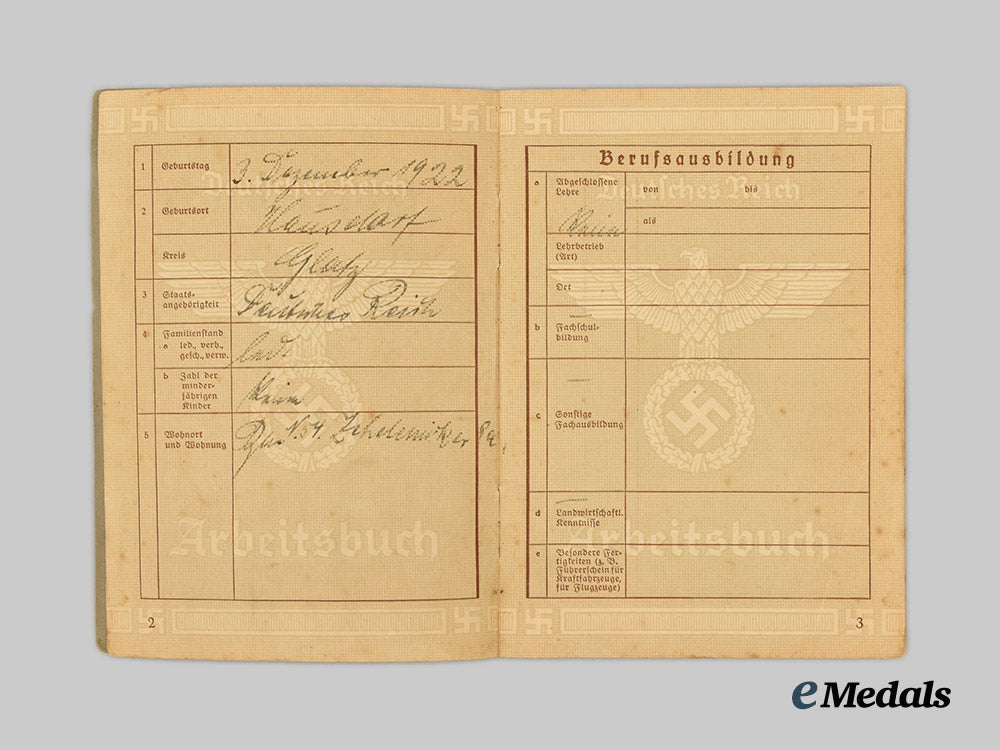 1 Geburtstag 3. Dezember 1922
Deutsches Reich
2 Geburtsort Hausdorf
Kreis Glatz
3 Staats-
angehörigkeit Deutsches Reich
4 Familienstand
a led., verh.,
gesch., verw. led.
b Zahl der
minder-
jährigen
Kinder
5 Wohnort
und Wohnung
Arbeitsbuch
2
Berufsausbildung
a Abgeschlossene
Lehre
von bis
Deutsches Reich
als
Lehrbetrieb
(Art)
Ort
b Fachschul-
bildung
c Sonstige
Fachausbildung
d Landwirtschaftl.
Kenntnisse
Arbeitsbuch
e Besondere Fer-
tigkeiten (z. B.
Führerschein für
Kraftfahrzeuge,
für Flugzeuge)
3
eMedals